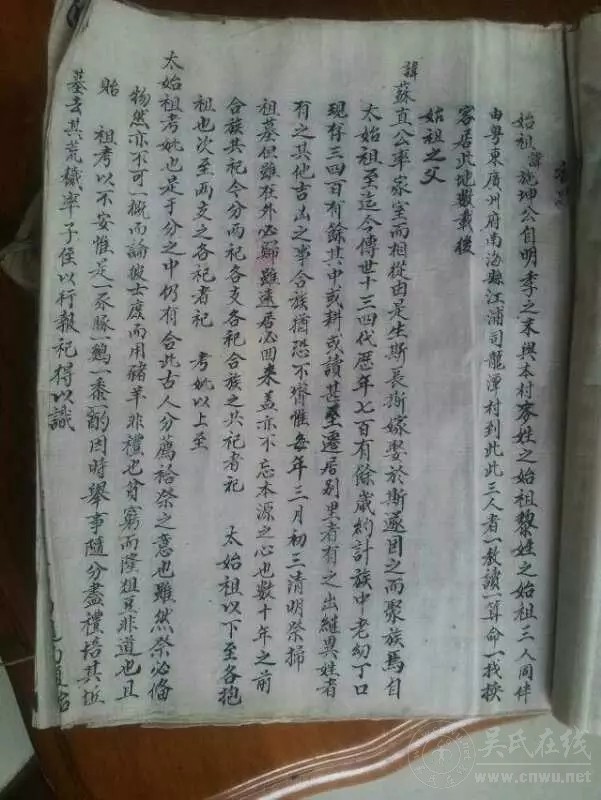 始祖諱施坤公自明季之末與本村麥姓之始祖黎姓之始祖三人同伴
由粤東廣州府南海縣江浦司龍潭村到此此三人者一教讀一算命一找
客居此地數載後
始祖之父
諱蘇直公率家室而相從由是生斯長斯嫁娶於斯遂因之而聚族焉自
太始祖至迄今傳世十三四代歷年七百有餘歲約計族中老幼丁口
現存三四百有餘其中或耕或讀甚至遷居别里者有之出繼異姓者
有之其他吉凶之事合族猶恐不齊惟每年三月初三清明祭掃
祖墓但雖在外必歸雖遠居必回来盖亦不忘本源之心也數十年之前
合族共祀今分兩祀各支各祀合族之共祀者祀 太始祖以下至各抱
祖也次至两支之各祀者祀 考妣以上至
太始祖考妣也是于分之中仍有合此古人分薦袷祭之意也雖然祭必俻
物然亦不可一概而論彼士庶而用豬羊非禮也貧窮而隆俎豆非道也且
貽 祖考以不安惟是一豕豚一鷄一黍酌因時舉事隨分盡禮培其坵
墓去其荒穢率子侄以行報祀得以識
吴氏在线
www.cnwu.net